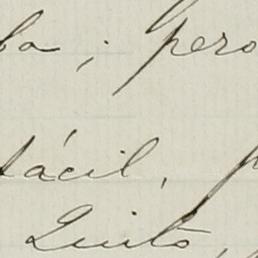 ; pero
fácil,
Quito,